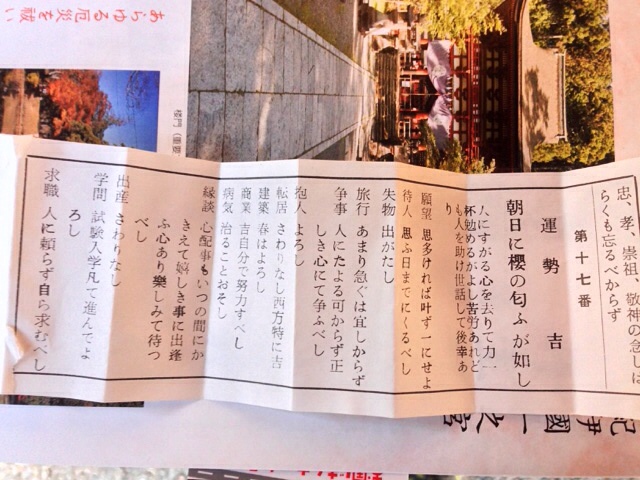 忠、孝、崇祖、敬神の念しば
らくも忘るべからず
第十七番
運勢 吉
朝日に櫻の匂ふが如し
人にすがる心を去りて力一
杯勉めるがよし苦労あれど
も人を助け世話して後幸あ
り
願望 思多ければ叶ず一にせよ
待人 思ふ日までにくるべし
失物 出がたし
旅行 あまり急ぐは宜しからず
争事 人にたよる可からず正
しき心にて争ふべし
抱人 よろし
転居 さわりなし西方特に吉
建築 春はよろし
商業 吉自分で努力すべし
病気 治ることおそし
縁談 心配事もいつの間にか
きえて嬉しき事に出逢
ふ心あり樂しみて待つ
べし
出産 さわりなし
学問 試験入学凡て進んでよ
ろし
求職 人に頼らず自ら求むべし
あらゆる厄災を祓い
楼門
紀伊國一之宮